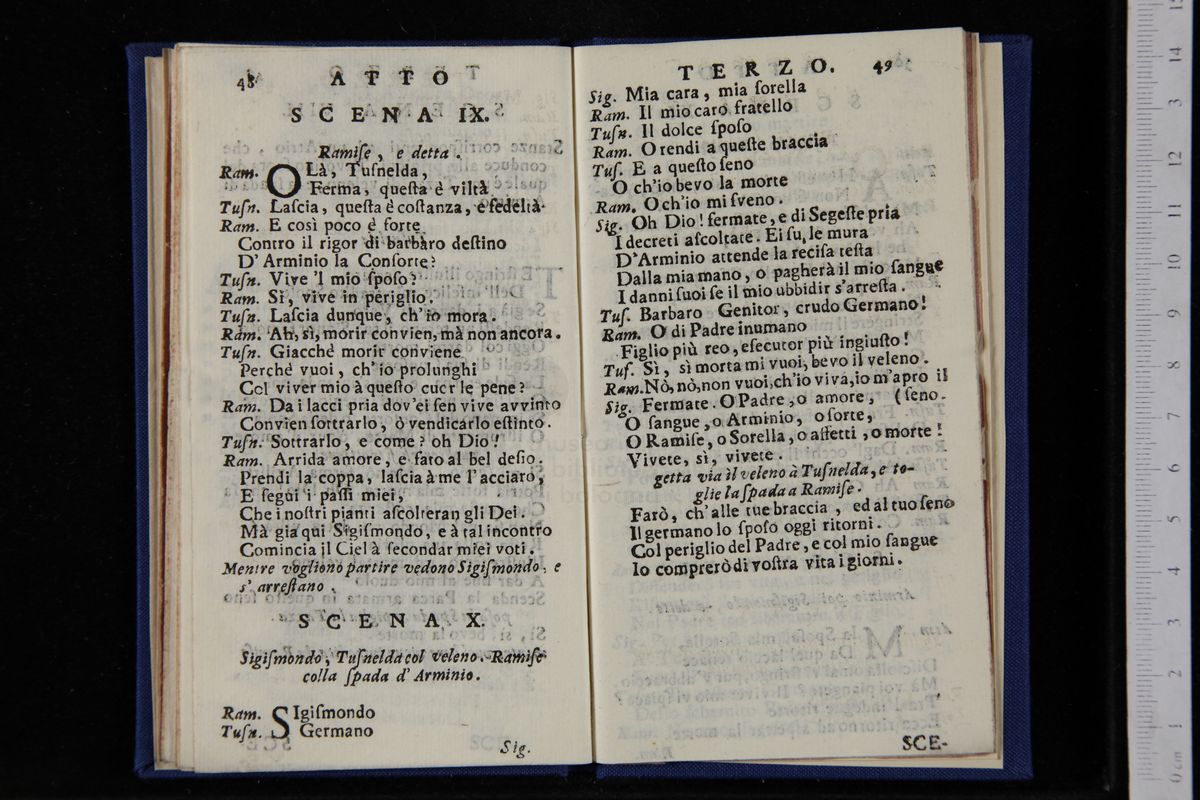 48 ATTO
SCENA IX.
Ramiſe, e detta.
Ram. OLà, Tuſnelda,
Ferma, queſta è viltà
Tuſn. Laſcia, queſta è coſtanza, e fedeltà
Ram. E così poco è forte
Contro il rigor di barbàro deſtino
D' Arminio la Conſorte?
Tuſn. Vive 'l mio ſpoſo?
Ram. Sì, vive in periglio.
Tuſn. Laſcia dunque, ch' io mora.
Ram. Ah, sì, morir convien, mà non ancora.
Tuſn. Giacchè morir conviene
Perchè vuoi, ch' io prolunghi
Col viver mio à queſto cuor le pene?
Ram. Da i lacci pria dov' ei ſen vive avvinto
Convien ſottrarlo, ò vendicarlo eſtinto.
Tuſn. Sottrarlo, e come? oh Dio!
Ram. Arrida amore, e fato al bel deſio.
Prendi la coppa, laſcia à me l'acciaro,
E ſegui i paſſi miei,
Che i noſtri pianti aſcolteran gli Dei.
Mà gia qui Sigiſmondo, e à tal incontro
Comincia il Ciel à ſecondar miei voti.
Mentre vogliono partire vedono Sigiſmondo, e
s' arreſtano.
SCENA X.
Sigiſmondo, Tuſnelda col veleno. Ramiſe
colla ſpada d' Arminio.
Ram. SIgiſmondo
Tuſn. Germano
Sig.
TERZO. 49
Sig. Mia cara, mia ſorella
Ram. Il mio caro fratello
Tuſn. Il dolce ſpoſo
Ram. O rendi a queſte braccia
Tuſ. E a queſto ſeno
O ch'io bevo la morte
Ram. O ch'io mi ſveno.
Sig. Oh Dio! fermate, e di Segeſte pria
I decreti aſcoltate. Ei ſu le mura
D'Arminio attende la reciſa teſta
Dalla mia mano, o pagherà il mio ſangue
I danni ſuoi ſe il mio ubbidir s'arreſta.
Tuſ. Barbaro Genitor, crudo Germano!
Ram. O di Padre inumano
Figlio più reo, eſecutor più ingiuſto!
Tuſ. Sì, sì morta mi vuoi, bevo il veleno.
Ram. Nò, nò, non vuoi, ch'io viva, io m'apro il
Sig. Fermate. O Padre, o amore, (ſeno.
O ſangue, o Arminio, o ſorte,
O Ramiſe, o Sorella, o affetti, o morte!
Vivete, sì, vivete.
getta via il veleno à Tuſnelda, e to-
glie la ſpada a Ramiſe.
Farò, ch'alle tue braccia, ed al tuo ſeno
Il germano lo ſpoſo oggi ritorni.
Col periglio del Padre, e col mio ſangue
Io comprerò di voſtra vita i giorni.
SCE-